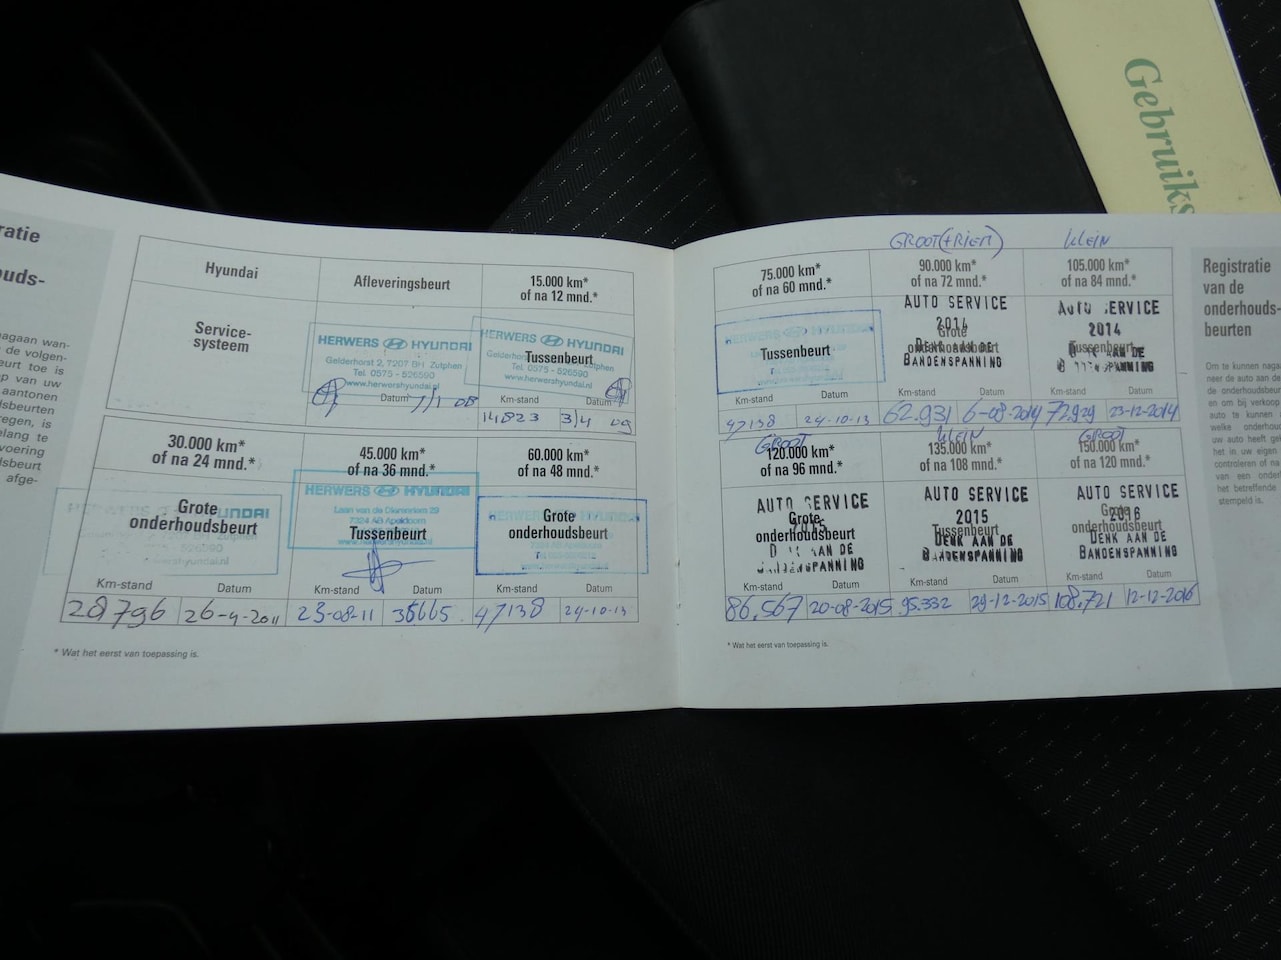 Gebruiks
ratie
ouds-
nagaan wan-
de volgen-
eurt toe is
op van uw
aantonen
dsbeurten
regen, is
elang te
voering
dsbeurt
afge-
Hyundai
Service-
systeem
Afleveringsbeurt
HERWERS HYUNDAI
Gelderhorst 2, 7207 BH Zutphen
Tel. 0575 - 526590
www.herwershyundai.nl
Datum
1/1 08
15.000 km*
of na 12 mnd.*
HERWERS HYUNDAI
Tussenbeurt
Tel. 0575 - 526590
www.herwershyundai.nl
Km-stand Datum
14823 3/4 09
30.000 km*
of na 24 mnd.*
HYUNDAI
Grote
onderhoudsbeurt
Km-stand Datum
28796 26-4-2011
45.000 km*
of na 36 mnd.*
HERWERS HYUNDAI
Laan van de Dierenriem 29
7324 AB Apeldoorn
Tussenbeurt
Km-stand Datum
23-08-11 35665
60.000 km*
of na 48 mnd.*
HERWERS HYUNDAI
Grote
onderhoudsbeurt
Km-stand Datum
47138 24-10-13
* Wat het eerst van toepassing is.
75.000 km*
of na 60 mnd.*
Tussenbeurt
Km-stand Datum
47138 24-10-13
GROOT(+RIEM)
90.000 km*
of na 72 mnd.*
AUTO SERVICE
2014
Grote
onderhoudsbeurt
DENK AAN DE
BANDENSPANNING
Km-stand Datum
62.931 6-08-2014
KLEIN
105.000 km*
of na 84 mnd.*
AUTO SERVICE
2014
Tussenbeurt
Km-stand Datum
72.929 23-12-2014
GROOT
120.000 km*
of na 96 mnd.*
AUTO SERVICE
2015
Grote
onderhoudsbeurt
DENK AAN DE
BANDENSPANNING
Km-stand Datum
86.567 20-08-2015
KLEIN
135.000 km*
of na 108 mnd.*
AUTO SERVICE
2015
Tussenbeurt
DENK AAN DE
BANDENSPANNING
Km-stand Datum
95.332 29-12-2015
GROOT
150.000 km*
of na 120 mnd.*
AUTO SERVICE
2016
Grote
onderhoudsbeurt
DENK AAN DE
BANDENSPANNING
Km-stand Datum
108.721 12-12-2016
* Wat het eerst van toepassing is.
Registratie
van de
onderhouds-
beurten
Om te kunnen naga
neer de auto aan de
de onderhoudsbeur
en om bij verkoop
auto te kunnen
welke onderhou
uw auto heeft gek
het in uw eigen
controleren of na
van een onder
het betreffende
stempeld is.